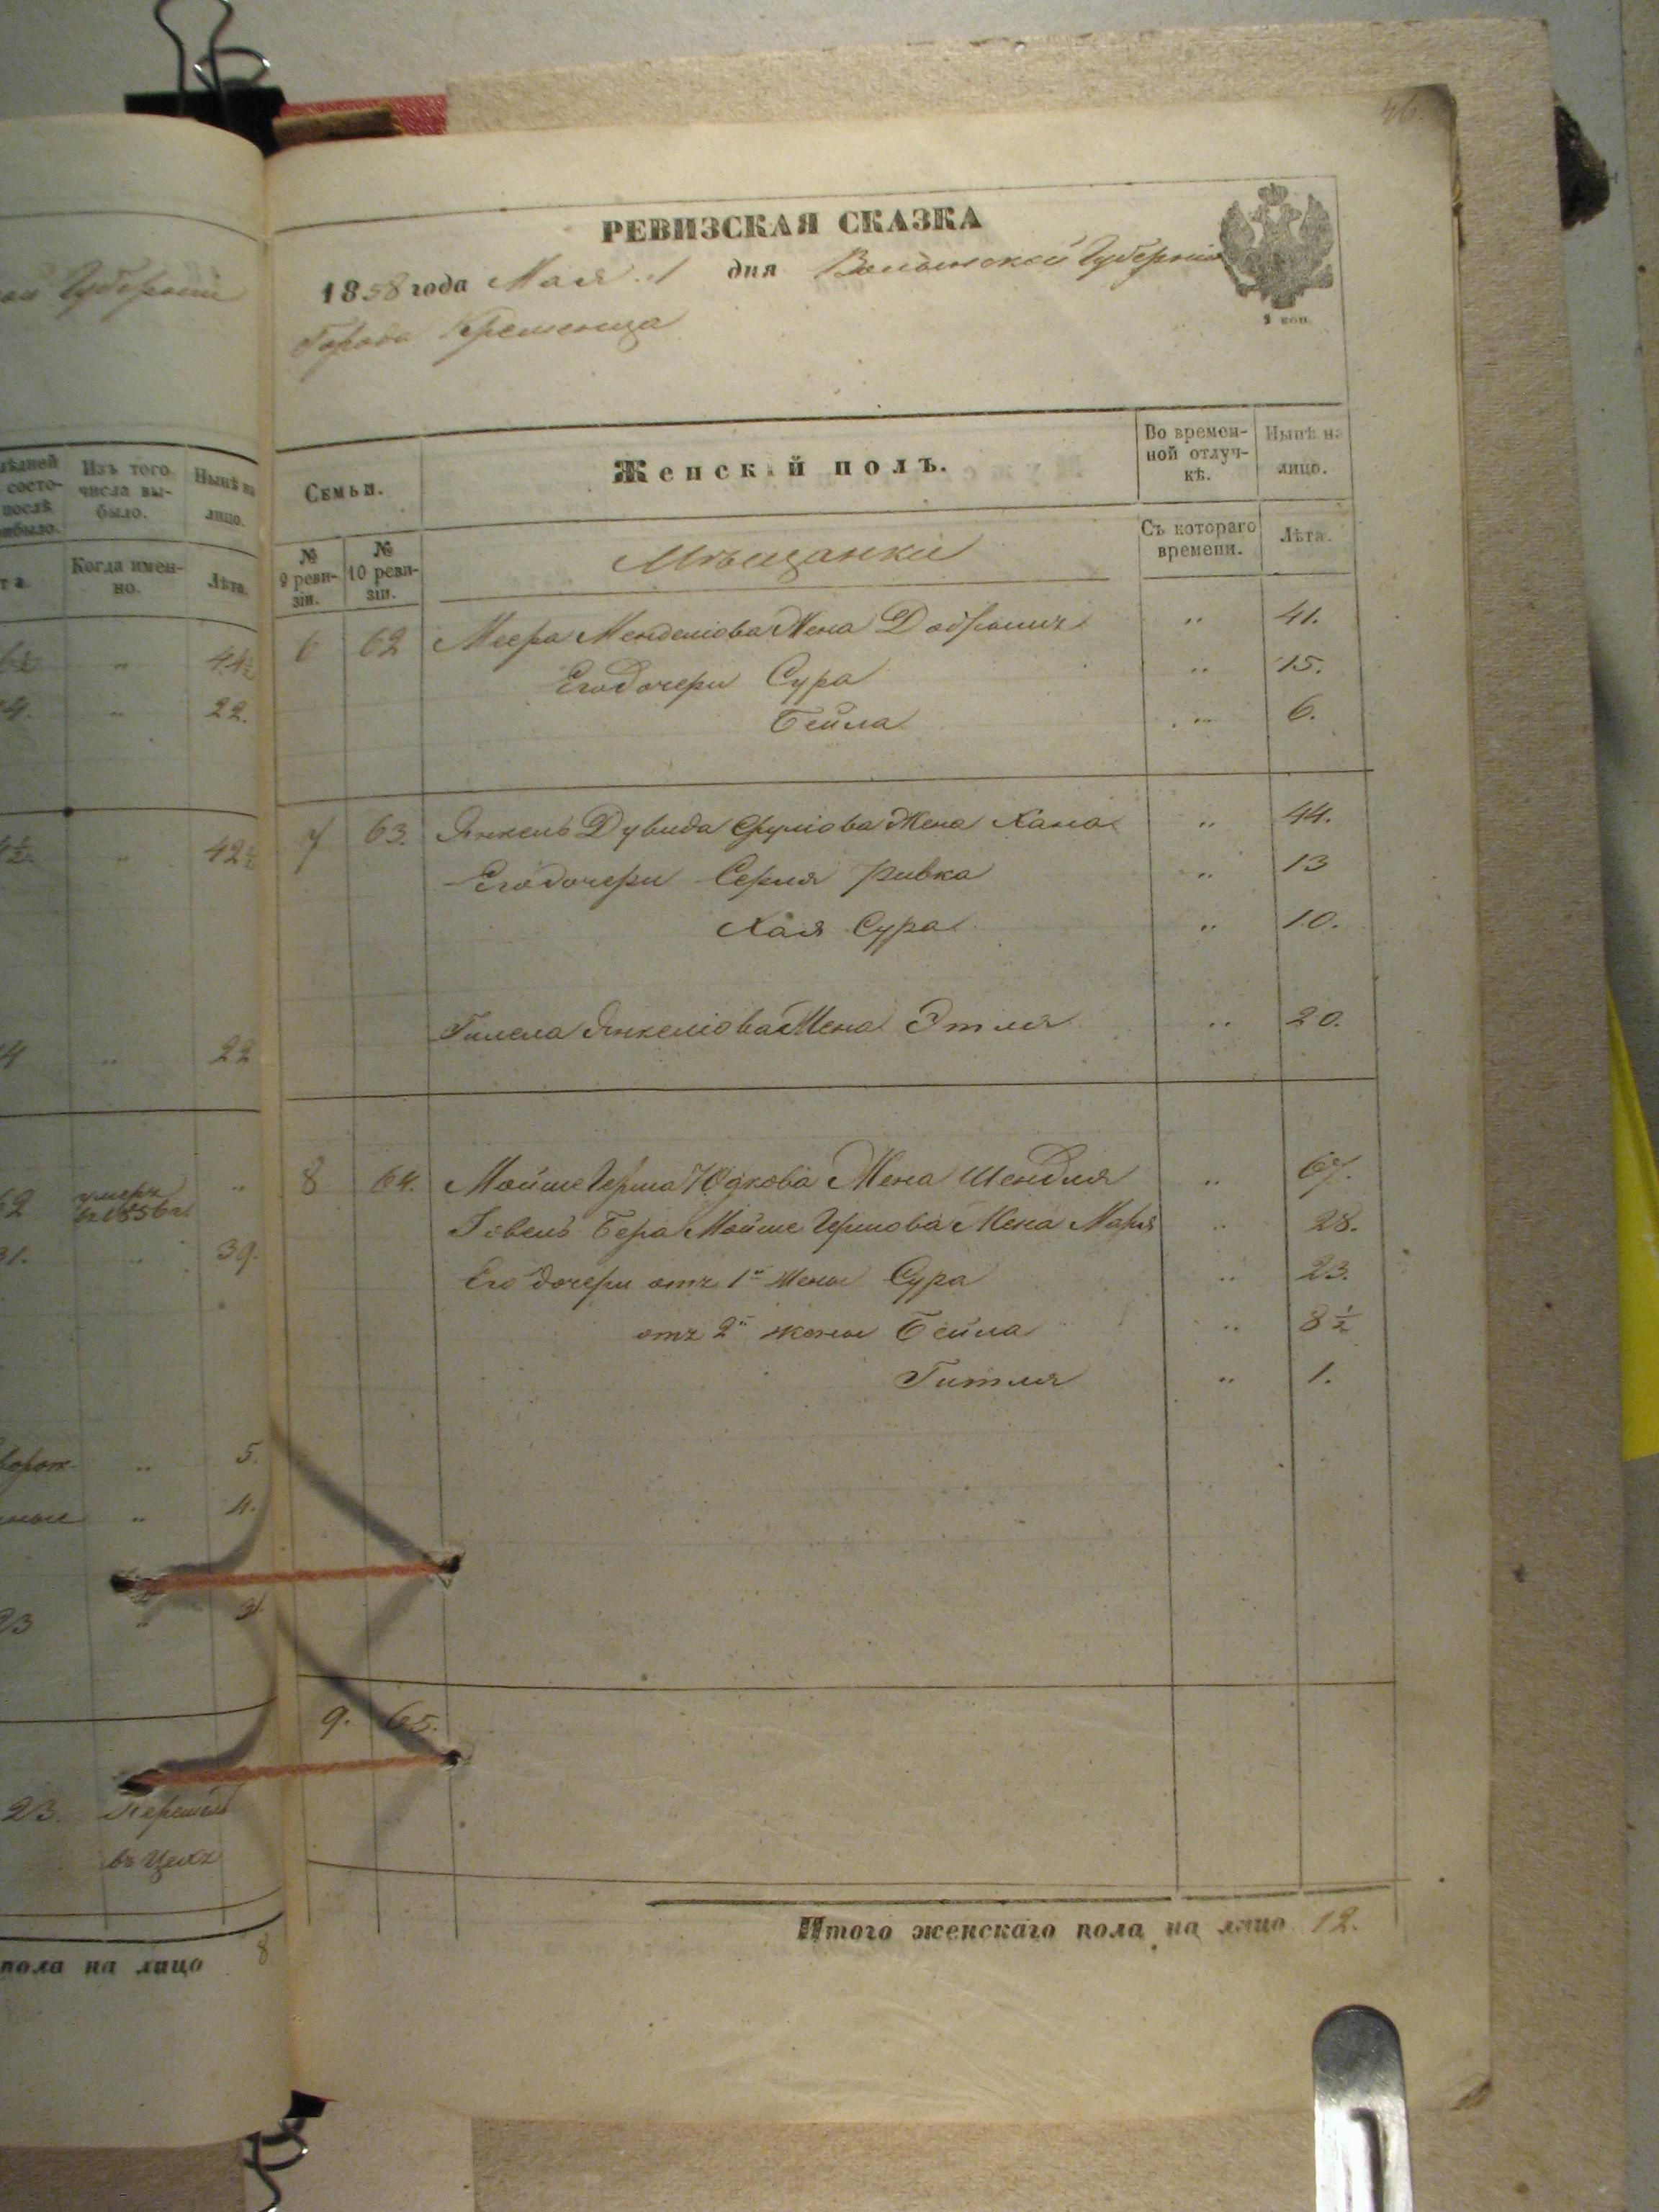 46.
РЕВИЗСКАЯ СКАЗКА
1858 года Мая 1 дня Волынской Губерніи
Города Кременца
2 коп.
Семьи.
Женскій полъ.
Во временной отлучкѣ.
Нынѣ на лицо.
№ 9 ревизіи.
№ 10 ревизіи.
Мѣщанки
Съ котораго времени.
Лѣта.
6 62 Меера Менделіова Жена Добрышъ " 41.
Его дочери Сура " 15.
Бейла " 6.
7 63. Янкель Дувида Сруліова Жена Хана " 44.
Его дочери Серля Ривка " 13
Хая Сура " 10.
Гилела Янкеліова Жена Этля " 20.
8 64. Мойше Герша Юдкова Жена Шендля " 67.
Бера Мойше Гершова Жена " 28.
Его дочери отъ 1й жены Сура " 23.
отъ 2й жены Бейла " 8 1/2
Гитля " 1.
9. 65.
Итого женскаго пола на лицо 12.
ой Губерніи
Изъ того числа выбыло.
Нынѣ на лицо.
Когда именно.
Лѣта.
" 44 1/2
" 22.
" 42 1/2
" 22
62 умеръ въ 1856 г. "
31. " 39.
" 5.
" 4.
23 " 3
23. въ цехъ
пола на лицо 8